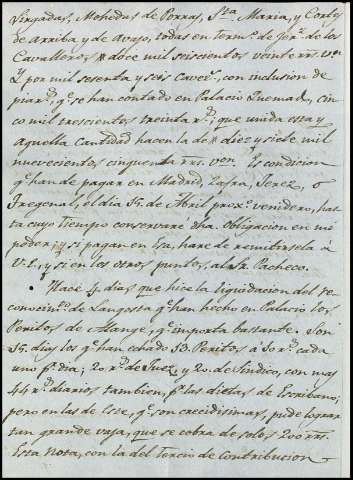 Lirgadas, Mohedas de Porras, S.ta Maria, y Cortijo
de Arriba y de Avajo, todas en term.o de Jer.z de los
Cavalleros, # doce mil seiscientos veinte rr.s v.n
Y por mil sesenta y seis cavez.s, con inclusion de
piar.s, q.e se han contado en Palacio Quemado, cin
co mil trescientos treinta r.s; que unida esta y
aquella cantidad hacen la de # diez y siete mil
nuevecientos cinquenta rrs. ven. Es condicion
q.e han de pagar en Madrid, Zafra, Jerez, o
Fregenal, el dia 15. de Abril prox.o venidero, has
ta cuyo tiempo conservaré dha. Obligacion en mi
poder; y si pagan en Esa, haré de remitirsela á
V.E., y si en los otros puntos, al Sr. Pacheco.
Hace 4. dias que hice la liquidacion del re
conocim.to de Langosta q.e han hecho en Palacio los
Peritos de Alange, q.e importa bastante. Son
15. dias los q.e han echado 13. Peritos á 10 r.s cada
uno p.r dia; 20. r.s de Juez y 20. de Sindico, con mas
44 r.s diarios tambien, p.r las dietas de Escribano;
pero en las de Ese, q.e son crecidisimas, pude lograr
tan grande vaja, que se cobra de solos 200 rrs.
Esta nota, con la del Tercio de Contribucion